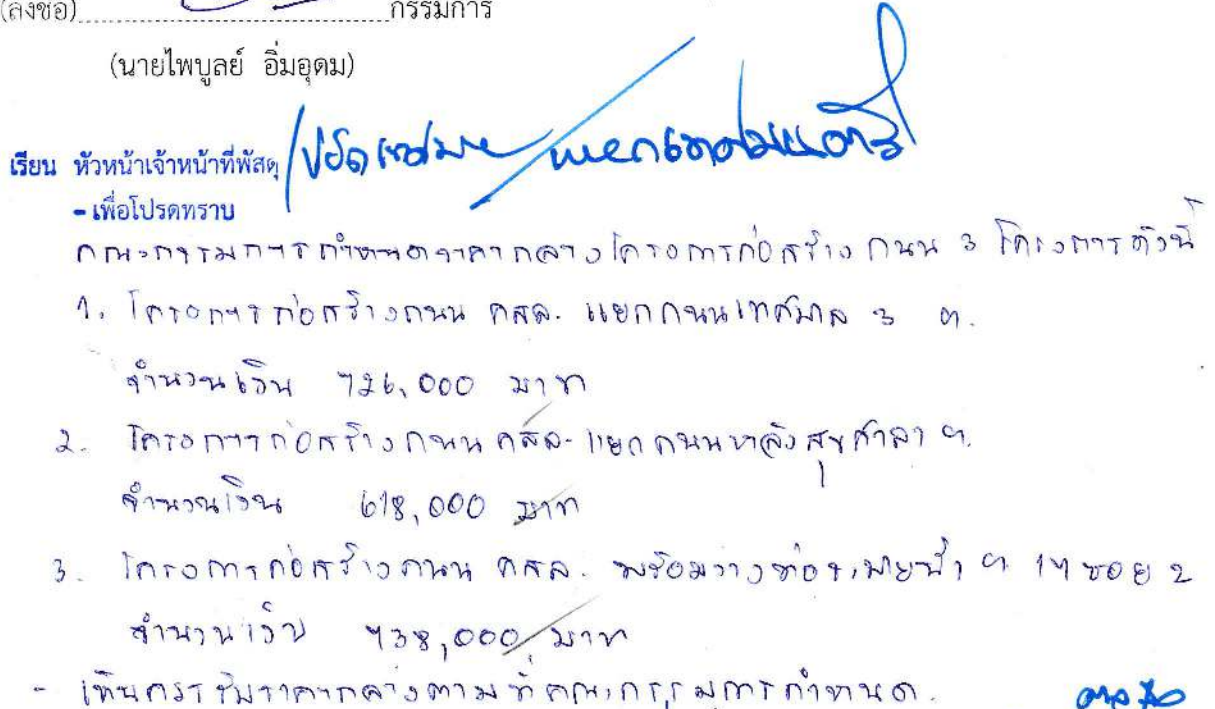 (ลงชื่อ)..............................กรรมการ
(นายไพบูลย์ อิ่มอุดม)
เรียน หัวหน้าเจ้าหน้าที่พัสดุ/ปลัดเทศบาล/นายกเทศมนตรี
- เพื่อโปรดทราบ
คณะกรรมการกำหนดราคากลางโครงการก่อสร้างถนน 3 โครงการดังนี้
1. โครงการก่อสร้างถนน คสล. แยกถนนเทศบาล 3 ต.
จำนวนเงิน 726,000 บาท
2. โครงการก่อสร้างถนน คสล. แยกถนนหลังสุขศาลา ต.
จำนวนเงิน 618,000 บาท
3. โครงการก่อสร้างถนน คสล. พร้อมวางท่อระบายน้ำ ต. ซอย 2
จำนวนเงิน 738,000 บาท
- เห็นควรรับราคากลางตามที่คณะกรรมการกำหนด.